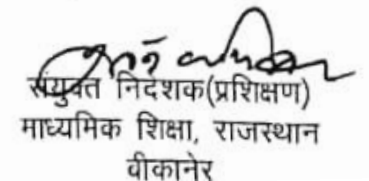 संयुक्त निदेशक(प्रशिक्षण)
माध्यमिक शिक्षा, राजस्थान
वीकानेर